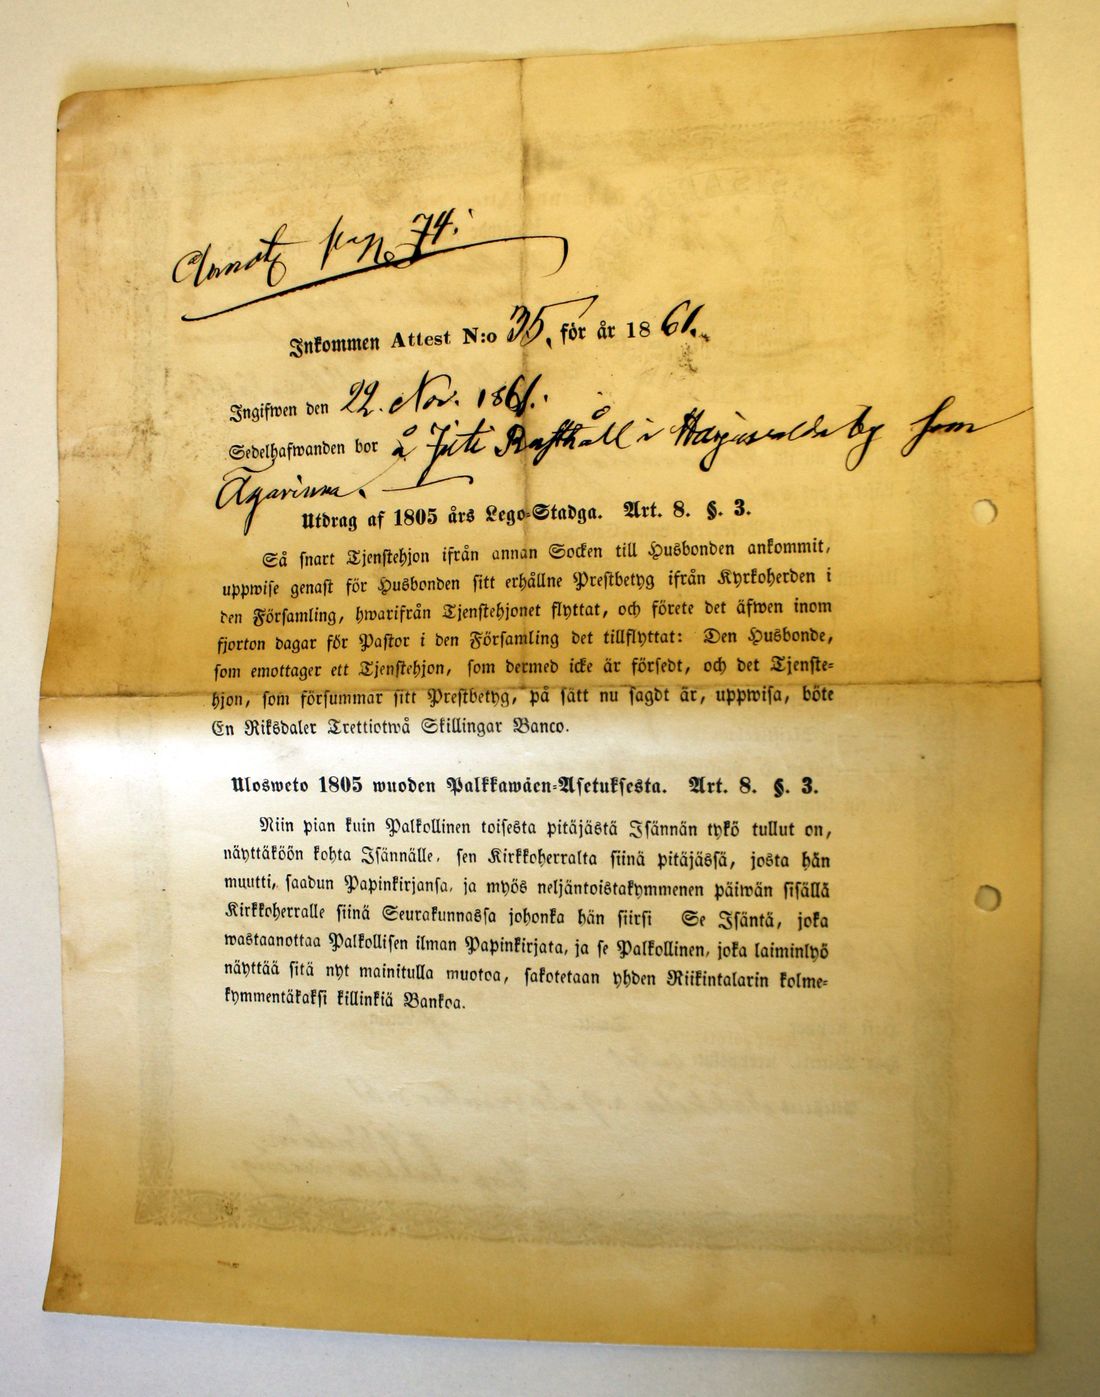 Annot. pag. 74.
Inkommen Attest N:o 35. för år 1861.
Ingifwen den 22. Nov. 1861.
Sedelhafwanden bor å Juti Rusthåll i by som
Ägarinna.
Utdrag af 1805 års Lego-Stadga. Art. 8. §. 3.
Så snart Tjenstehjon ifrån annan Socken till Husbonden ankommit,
uppwise genast för Husbonden sitt erhållne Prestbetyg ifrån Kyrkoherden i
den Församling, hwarifrån Tjenstehjonet flyttat, och förete det äfwen inom
fjorton dagar för Pastor i den Församling det tillflyttat: Den Husbonde,
som emottager ett Tjenstehjon, som dermed icke är försedt, och det Tjenste-
hjon, som försummar sitt Prestbetyg, på sätt nu sagdt är, uppwisa, böte
En Riksdaler Trettiotwå Skillingar Banco.
Ulosweto 1805 wuoden Palkkawäen-Asetuksesta. Art. 8. §. 3.
Niin pian kuin Palkollinen toisesta pitäjästä Isännän tykö tullut on,
näyttäköön kohta Isännälle, sen Kirkkoherralta siinä pitäjässä, josta hän
muutti, saadun Papinkirjansa, ja myös neljäntoistakymmenen päiwän sisällä
Kirkkoherralle siinä Seurakunnassa johonka hän siirsi Se Isäntä, joka
wastaanottaa Palkollisen ilman Papinkirjata, ja se Palkollinen, joka laiminlyö
näyttää sitä nyt mainitulla muotoa, sakotetaan yhden Riikintalarin kolme-
kymmentäkaksi killinkiä Bankoa.